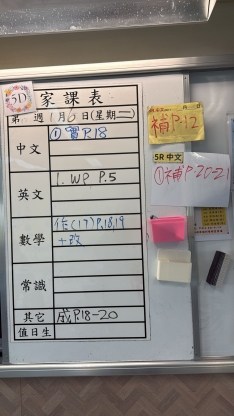 5D
家課表
第 週 1月6日(星期二)
中文
①實P.18
英文
1. WP P.5
數學
作(17)P.18,19
+改
常識
其它
成P.18-20
值日生
補P.12
5R 中文
①補P.20-21